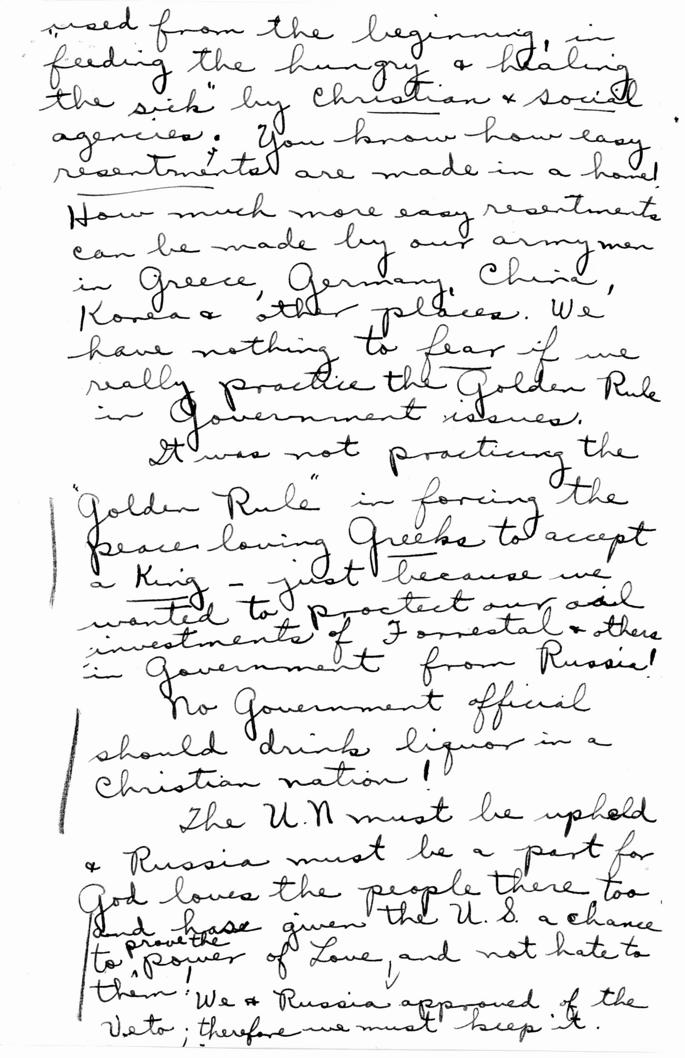 "used from the beginning, in
feeding the hungry & healing
the sick" by Christian & social
agencies. You know how easy
resentments are made in a home!
How much more easy resentments
can be made by our army men
in Greece, Germany, China,
Korea & other places. We
have nothing to fear if we
really practice the Golden Rule
in Government issues.
It was not practicing the
"Golden Rule" in forcing the
peace loving Greeks to accept
a King - just because we
wanted to proctect our oil
investments of Forrestal & others
in Government from Russia!
No Government official
should drink liquor in a
Christian nation!
The U.N must be uphold
& Russia must be a part for
God loves the people there too
and has given the U.S. a chance
to prove the power of Love, and not hate to
them! We & Russia approved of the
Veto; therefore we must keep it.